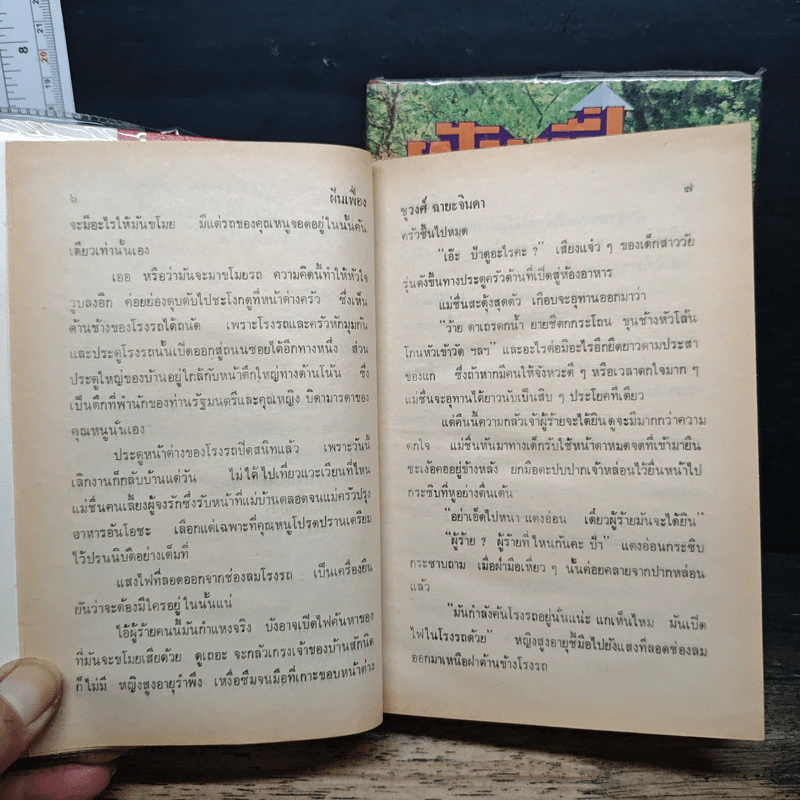 8
21
20
19
๖
ฝันเฟื่อง
จะมีอะไรให้มันขโมย มีแต่รถของคุณหนูจอดอยู่ในนั้นคัน
เดียวเท่านั้นเอง
เออ หรือว่ามันจะมาขโมยรถ ความคิดนี้ทำให้หัวใจ
วูบลงอีก ค่อยย่องตุบตับไปชะโงกดูที่หน้าต่างครัว ซึ่งเห็น
ด้านข้างของโรงรถได้ถนัด เพราะโรงรถและครัวหักมุมกัน
และประตูโรงรถนั้นเปิดออกสู่ถนนซอยได้อีกทางหนึ่ง ส่วน
ประตูใหญ่ของบ้านอยู่ใกล้กับหน้าตึกใหญ่ทางด้านโน้น ซึ่ง
เป็นตึกที่พำนักของท่านรัฐมนตรีและคุณหญิง บิดามารดาของ
คุณหนูนั่นเอง
ประตูหน้าต่างของโรงรถปิดสนิทแล้ว เพราะวันนี้
เลิกงานก็กลับบ้านแต่วัน ไม่ได้ไปเที่ยวแวะเวียนที่ไหน
แม่ชื่นคนเลี้ยงผู้จงรักซึ่งรับหน้าที่แม่บ้านตลอดจนแม่ครัวปรุง
อาหารอันโอชะ เลือกแต่เฉพาะที่คุณหนูโปรดปรานเตรียม
ไว้ปรนนิบัติอย่างเต็มที่
แสงไฟที่ลอดออกจากช่องลมโรงรถ เป็นเครื่องยืน
ยันว่าจะต้องมีใครอยู่ในนั้นแน่
ไอ้ผู้ร้ายคนนี้มันกำแหงจริง บังอาจเปิดไฟค้นหาของ
ที่มันจะขโมยเสียด้วย ดูเถอะ จะกลัวเกรงเจ้าของบ้านสักนิด
ก็ไม่มี หญิงสูงอายุรำพึง เหงื่อซึมจนมือที่เกาะขอบหน้าต่าง
ชูวงศ์ ฉายะจินดา
๗
ครัวชื้นไปหมด
“เอ๊ะ ป้าดูอะไรคะ ?” เสียงแจ๋ว ๆ ของเด็กสาววัย
รุ่นดังขึ้นทางประตูครัวด้านที่เปิดสู่ห้องอาหาร
แม่ชื่นสะดุ้งสุดตัว เกือบจะอุทานออกมาว่า
“ว้าย ตาเถรตกน้ำ ยายชีตกกระโถน ขุนช้างหัวโล้น
โกนหัวเข้าวัด ฯลฯ” และอะไรต่อมิอะไรอีกยืดยาวตามประสา
ของแก ซึ่งถ้าหากมีคนให้จังหวะดี ๆ หรือเวลาตกใจมาก ๆ
แม่ชื่นจะอุทานได้ยาวนับเป็นสิบ ๆ ประโยคทีเดียว
แต่คืนนี้ความกลัวเจ้าผู้ร้ายจะได้ยินดูจะมีมากกว่าความ
ตกใจ แม่ชื่นหันมาทางเด็กรับใช้หน้าตาหมดจดที่เข้ามายืน
ชะเง้อคออยู่ข้างหลัง ยกมือตะปบปากเจ้าหล่อนไว้ยื่นหน้าไป
กระซิบที่หูอย่างตื่นเต้น
“อย่าเอ็ดไปหนา แตงอ่อน เดี๋ยวผู้ร้ายมันจะได้ยิน”
“ผู้ร้าย ? ผู้ร้ายที่ไหนกันคะ ป้า” แตงอ่อนกระซิบ
กระซาบถาม เมื่อฝ่ามือเหี่ยว ๆ นั้นค่อยคลายจากปากหล่อน
แล้ว
“มันกำลังค้นโรงรถอยู่นั่นแน่ะ แกเห็นไหม มันเปิด
ไฟในโรงรถด้วย” หญิงสูงอายุชี้มือไปยังแสงที่ลอดช่องลม
ออกมาเหนือฝาด้านข้างโรงรถ